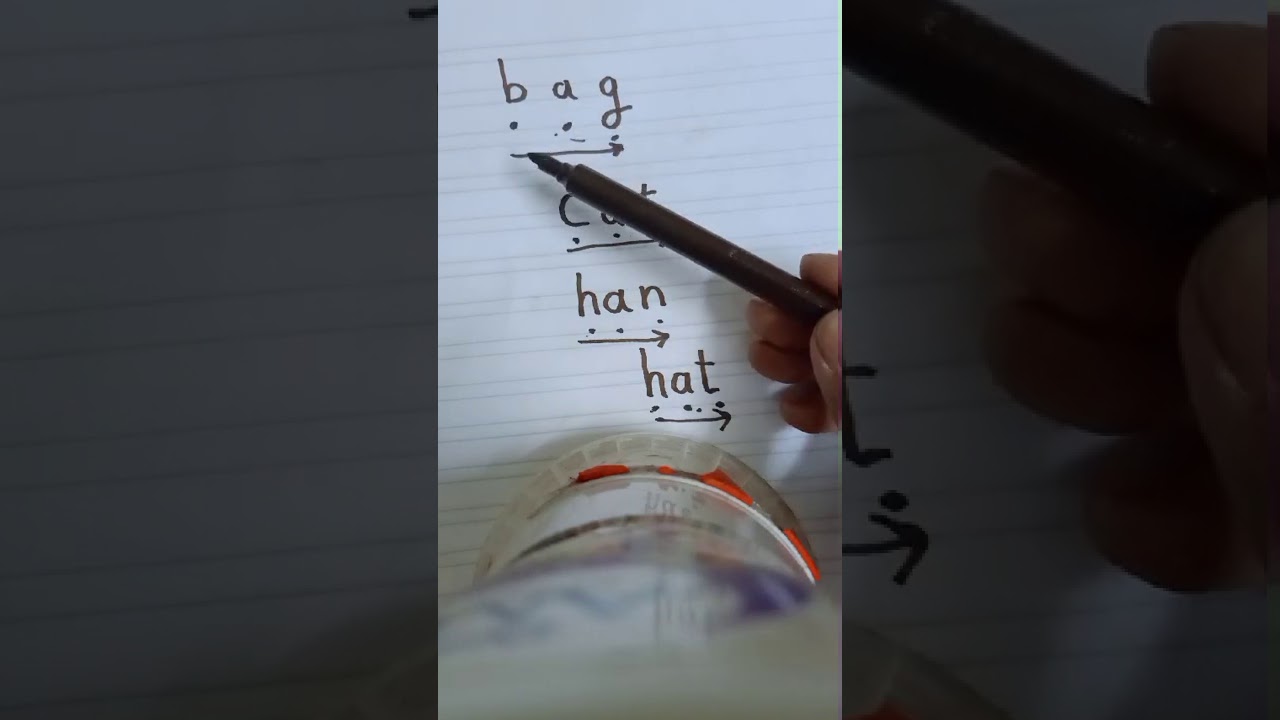 b a g
cat
han
hat